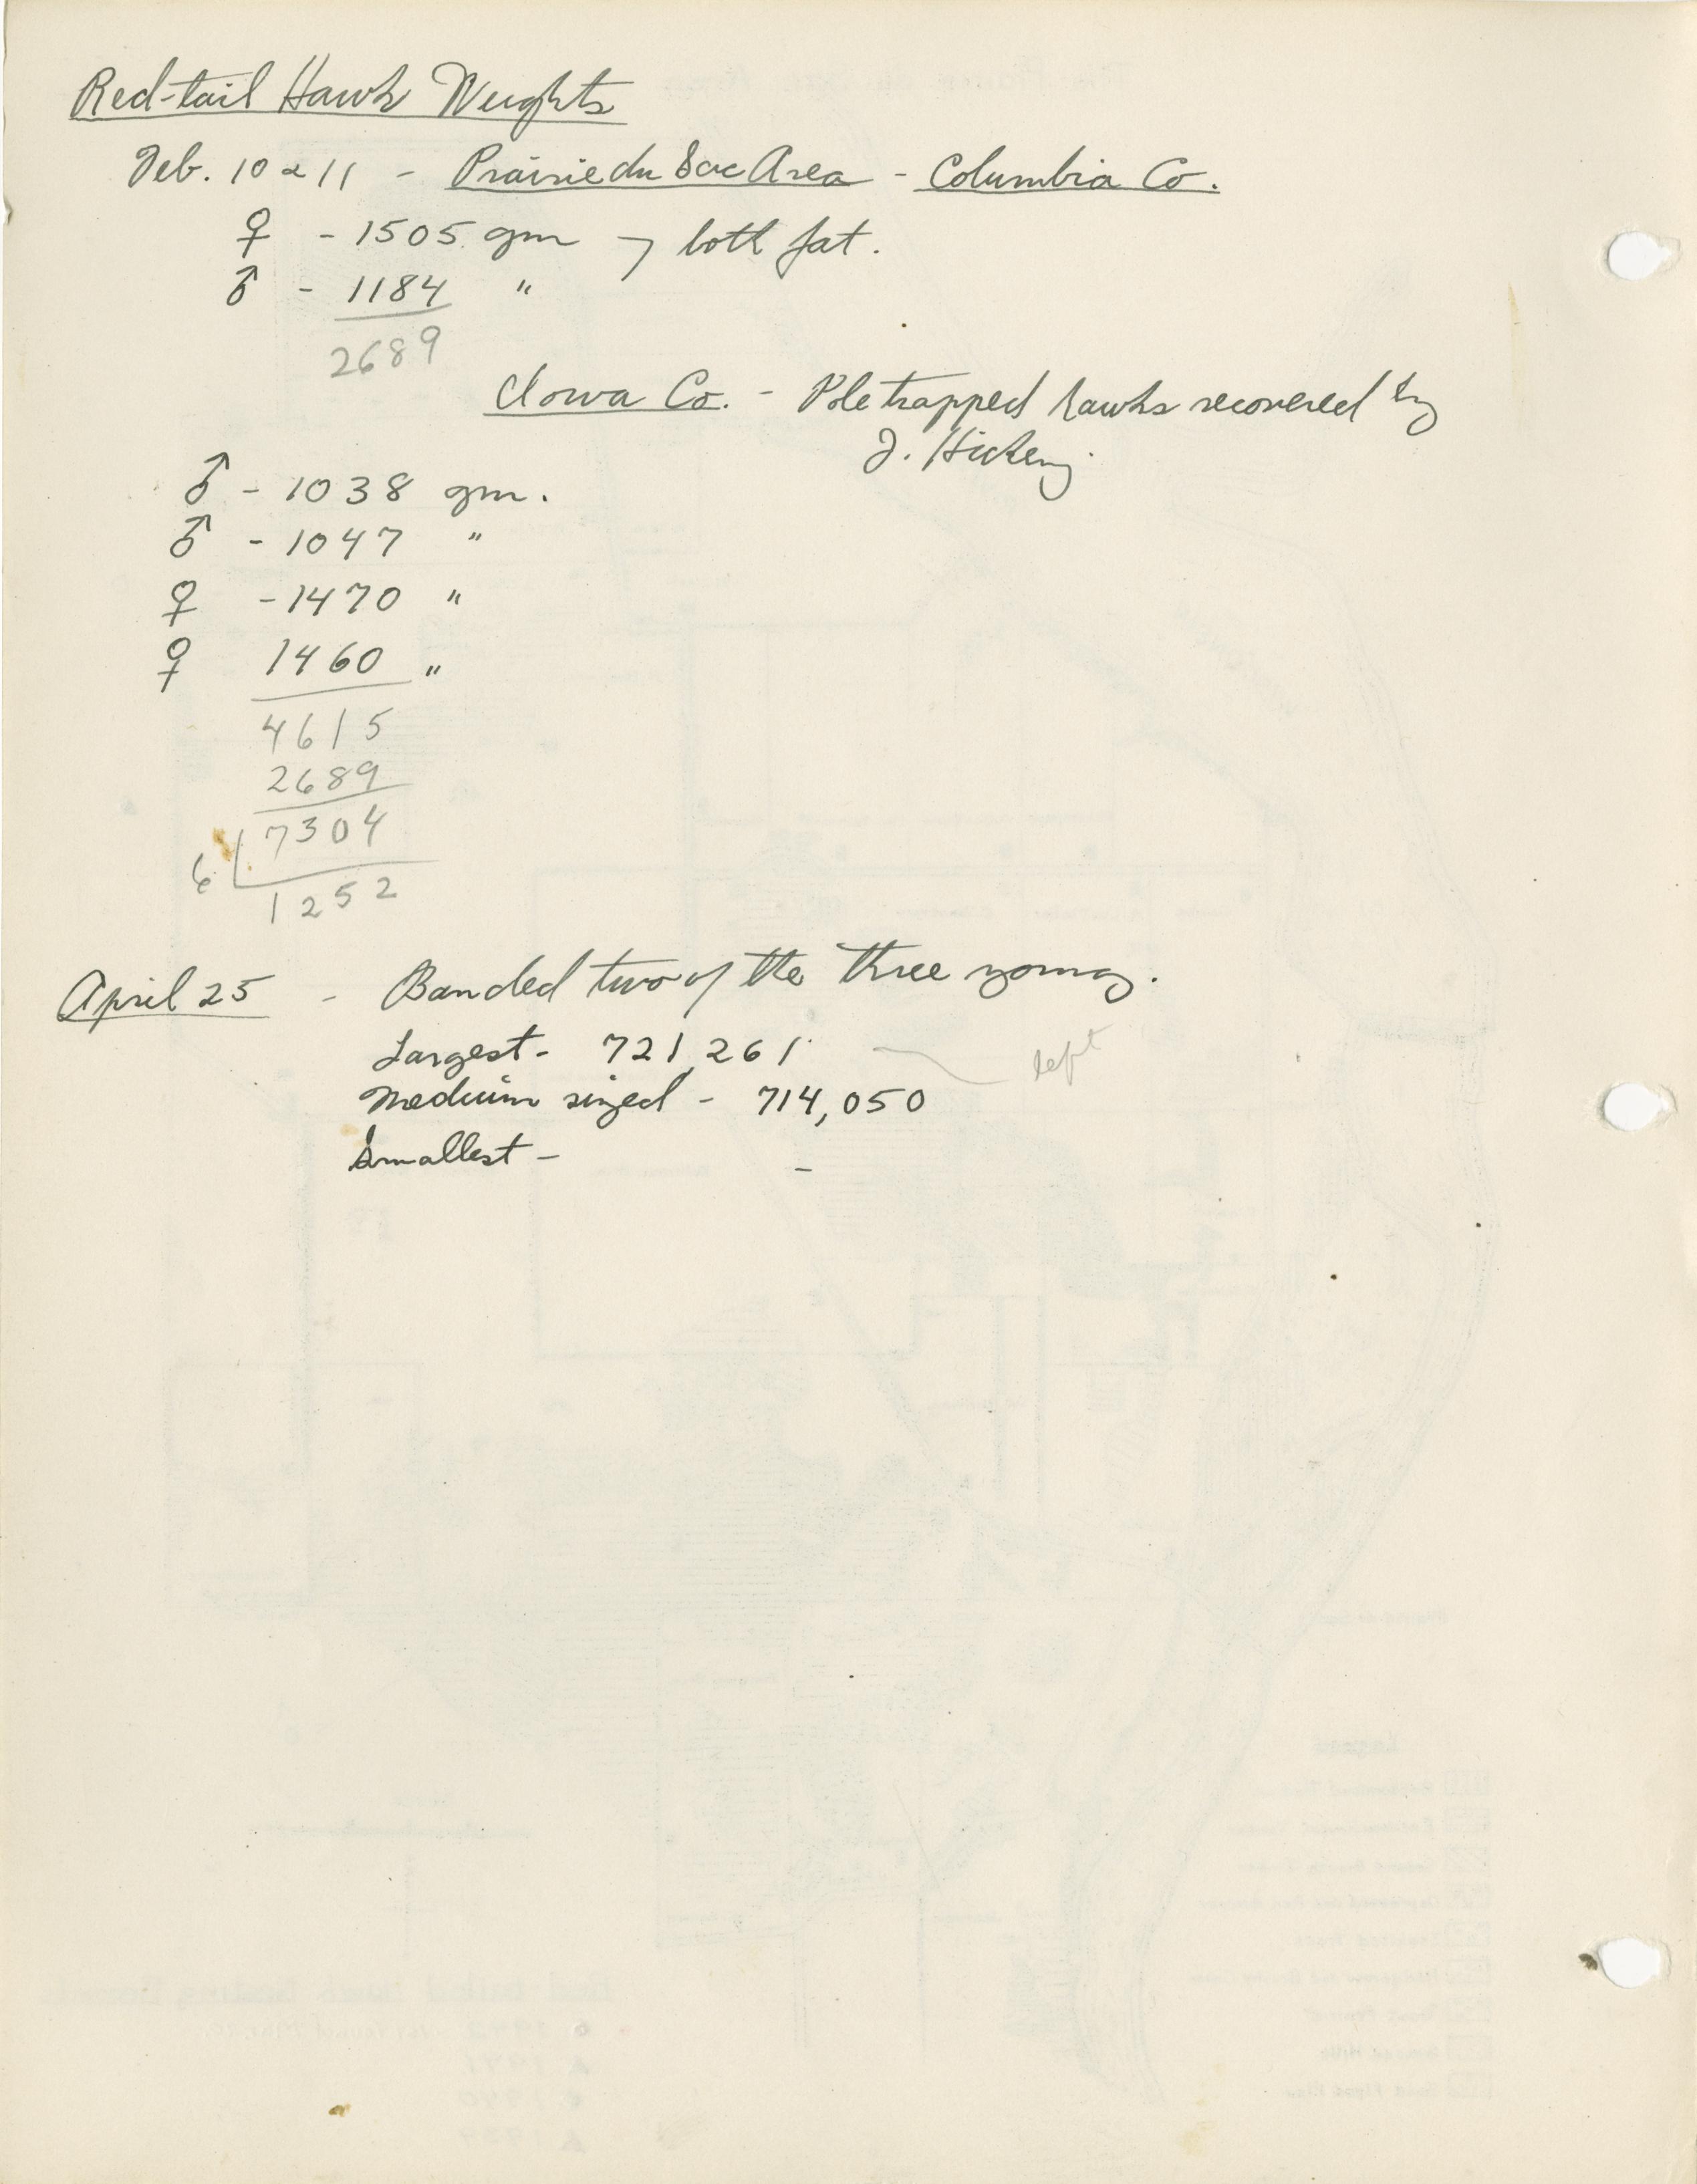 Red-tail Hawk Weights
Feb. 10 & 11 - Prairie du Sac Area - Columbia Co.
♀ - 1505 gm } both fat.
♂ - 1184 "
2689
Iowa Co. - Pole trapped hawks recovered by
J. Hickey.
♂ - 1038 gm.
♂ - 1047 "
♀ - 1470 "
♀ 1460 "
4615
2689
7304
6
1252
April 25 - Banded two of the three young.
Largest - 721,261 left
Medium sized - 714,050
Smallest - -